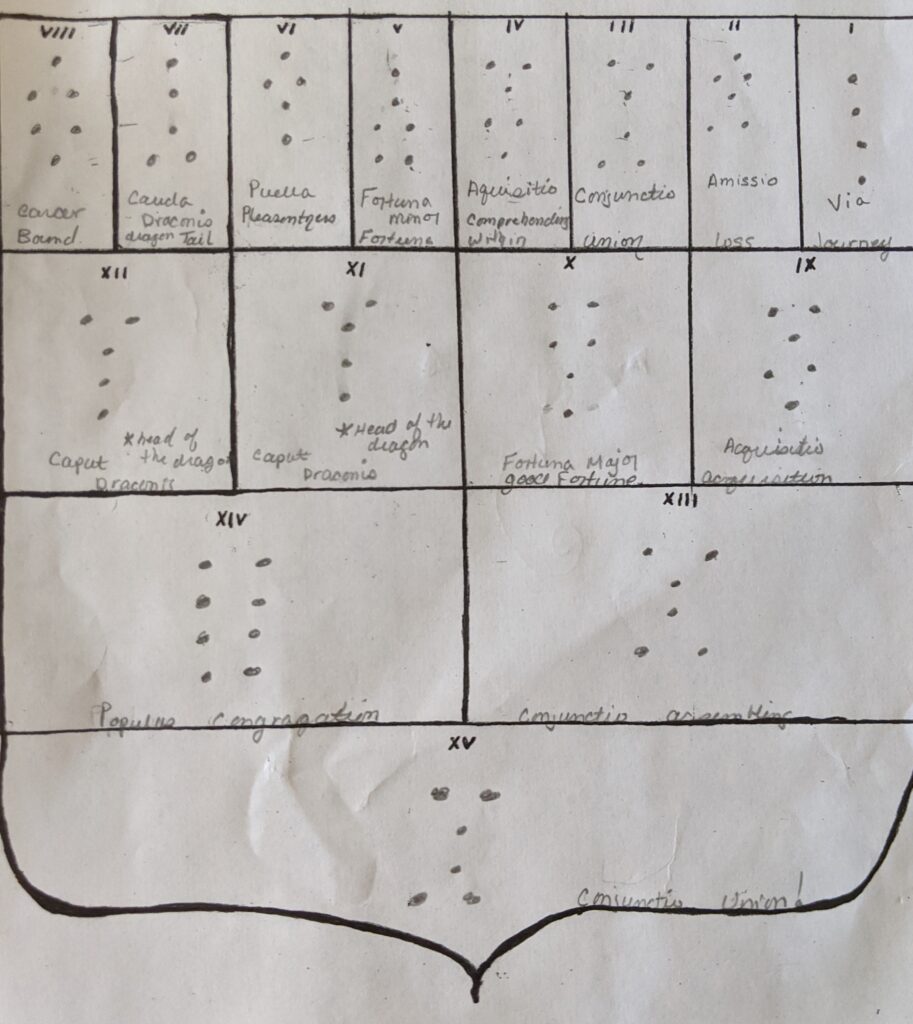 VIII VII VI V IV III II I
Carcer
Bound
Cauda
Draconis
dragon Tail
Puella
Pleasentness
Fortuna
minor
Fortune
Aquisitio
Comprehending
within
Conjunctio
union
Amissio
Loss
Via
Journey
XII XI X IX
*head of
the dragon
Caput
Draconis
*Head of the
dragon
Caput
Draconis
Fortuna Major
good Fortune
Acquisitio
acquisition
XIV XIII
Populus Congragation
Conjunctio assembling
XV
Conjunctio Union!